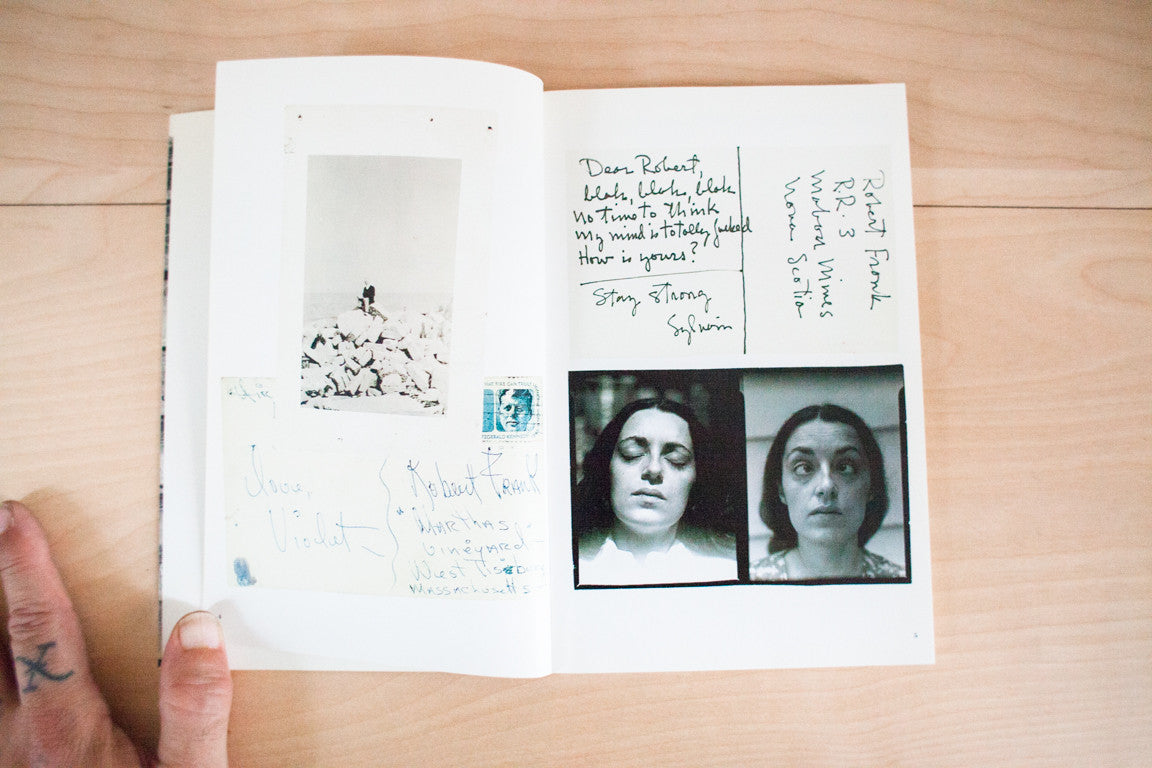 HAT FIRE CAN TRULY
FITZGERALD KENNEDY
Love,
Violet
Robert Frank
Marthas
Vineyard
West Tisbury
Massachusetts
Dear Robert,
blah, blah, blah
no time to think
my mind is totally fucked
How is yours?
Stay strong
Sylvain
Robert Frank
RR. 3
Mabou Mines
Nova Scotia
5